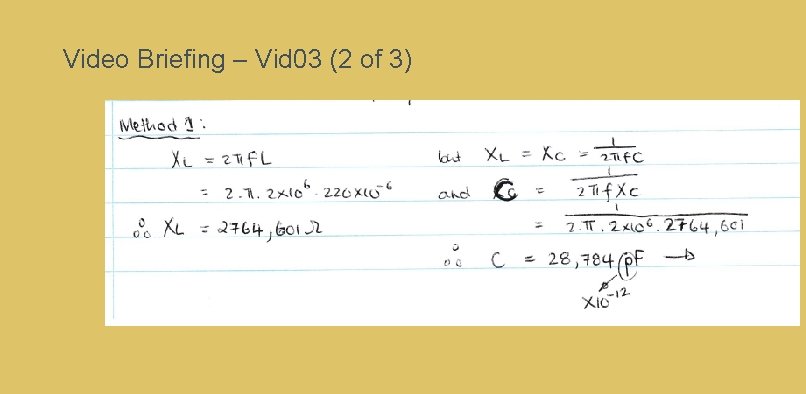 Video Briefing – Vid03 (2 of 3)
Method 1:
XL = 2πFL
= 2.π. 2x10⁶ . 220x10⁻⁶
∴ XL = 2764,601Ω
but XL = XC = 1/2πfC
and C = 1/2πfXC
= 1/2.π.2x10⁶.2764,601
∴ C = 28,784 pF →
x10⁻¹²